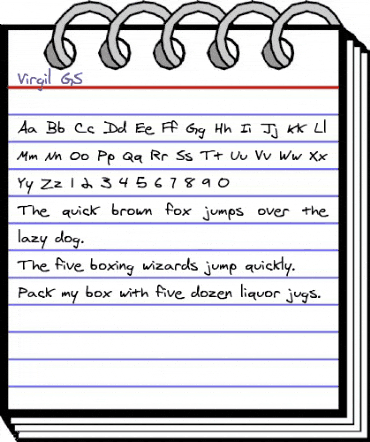 Virgil GS
Aa Bb Cc Dd Ee Ff Gg Hh Ii Jj KK Ll
Mm Nn Oo Pp Qq Rr Ss Tt Uu Vv Ww Xx
Yy Zz 1 2 3 4 5 6 7 8 9 0
The quick brown fox jumps over the
lazy dog.
The five boxing wizards jump quickly.
Pack my box with five dozen liquor jugs.